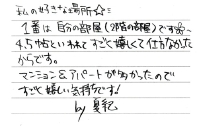 私の好きな場所☆ミ
1番は自分の部屋(2階の部屋)です。
4.5帖といわれてすごく嬉しくて仕方なかった
からです。
マンション&アパートが多かったので
すごく嬉しい気持ちです!
by 夏紀